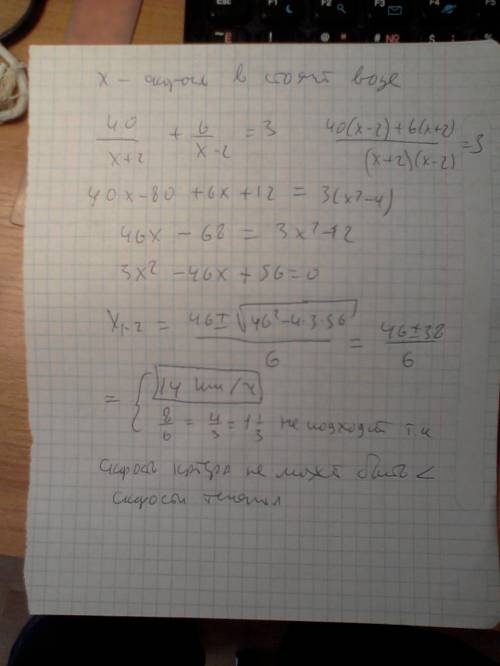 x - скорость в стоят воде
40/(x+2) + 6/(x-2) = 3    (40(x-2)+6(x+2))/((x+2)(x-2)) = 3
40x-80 +6x+12 = 3(x²-4)
46x - 68 = 3x²-12
3x² - 46x + 56 = 0
x₁,₂ = (46±√(46²-4·3·56))/6 = (46±38)/6
= { 14 км/ч
8/6 = 4/3 = 1 1/3 не подходит т.к
скорость катера не может быть <
скорости течения